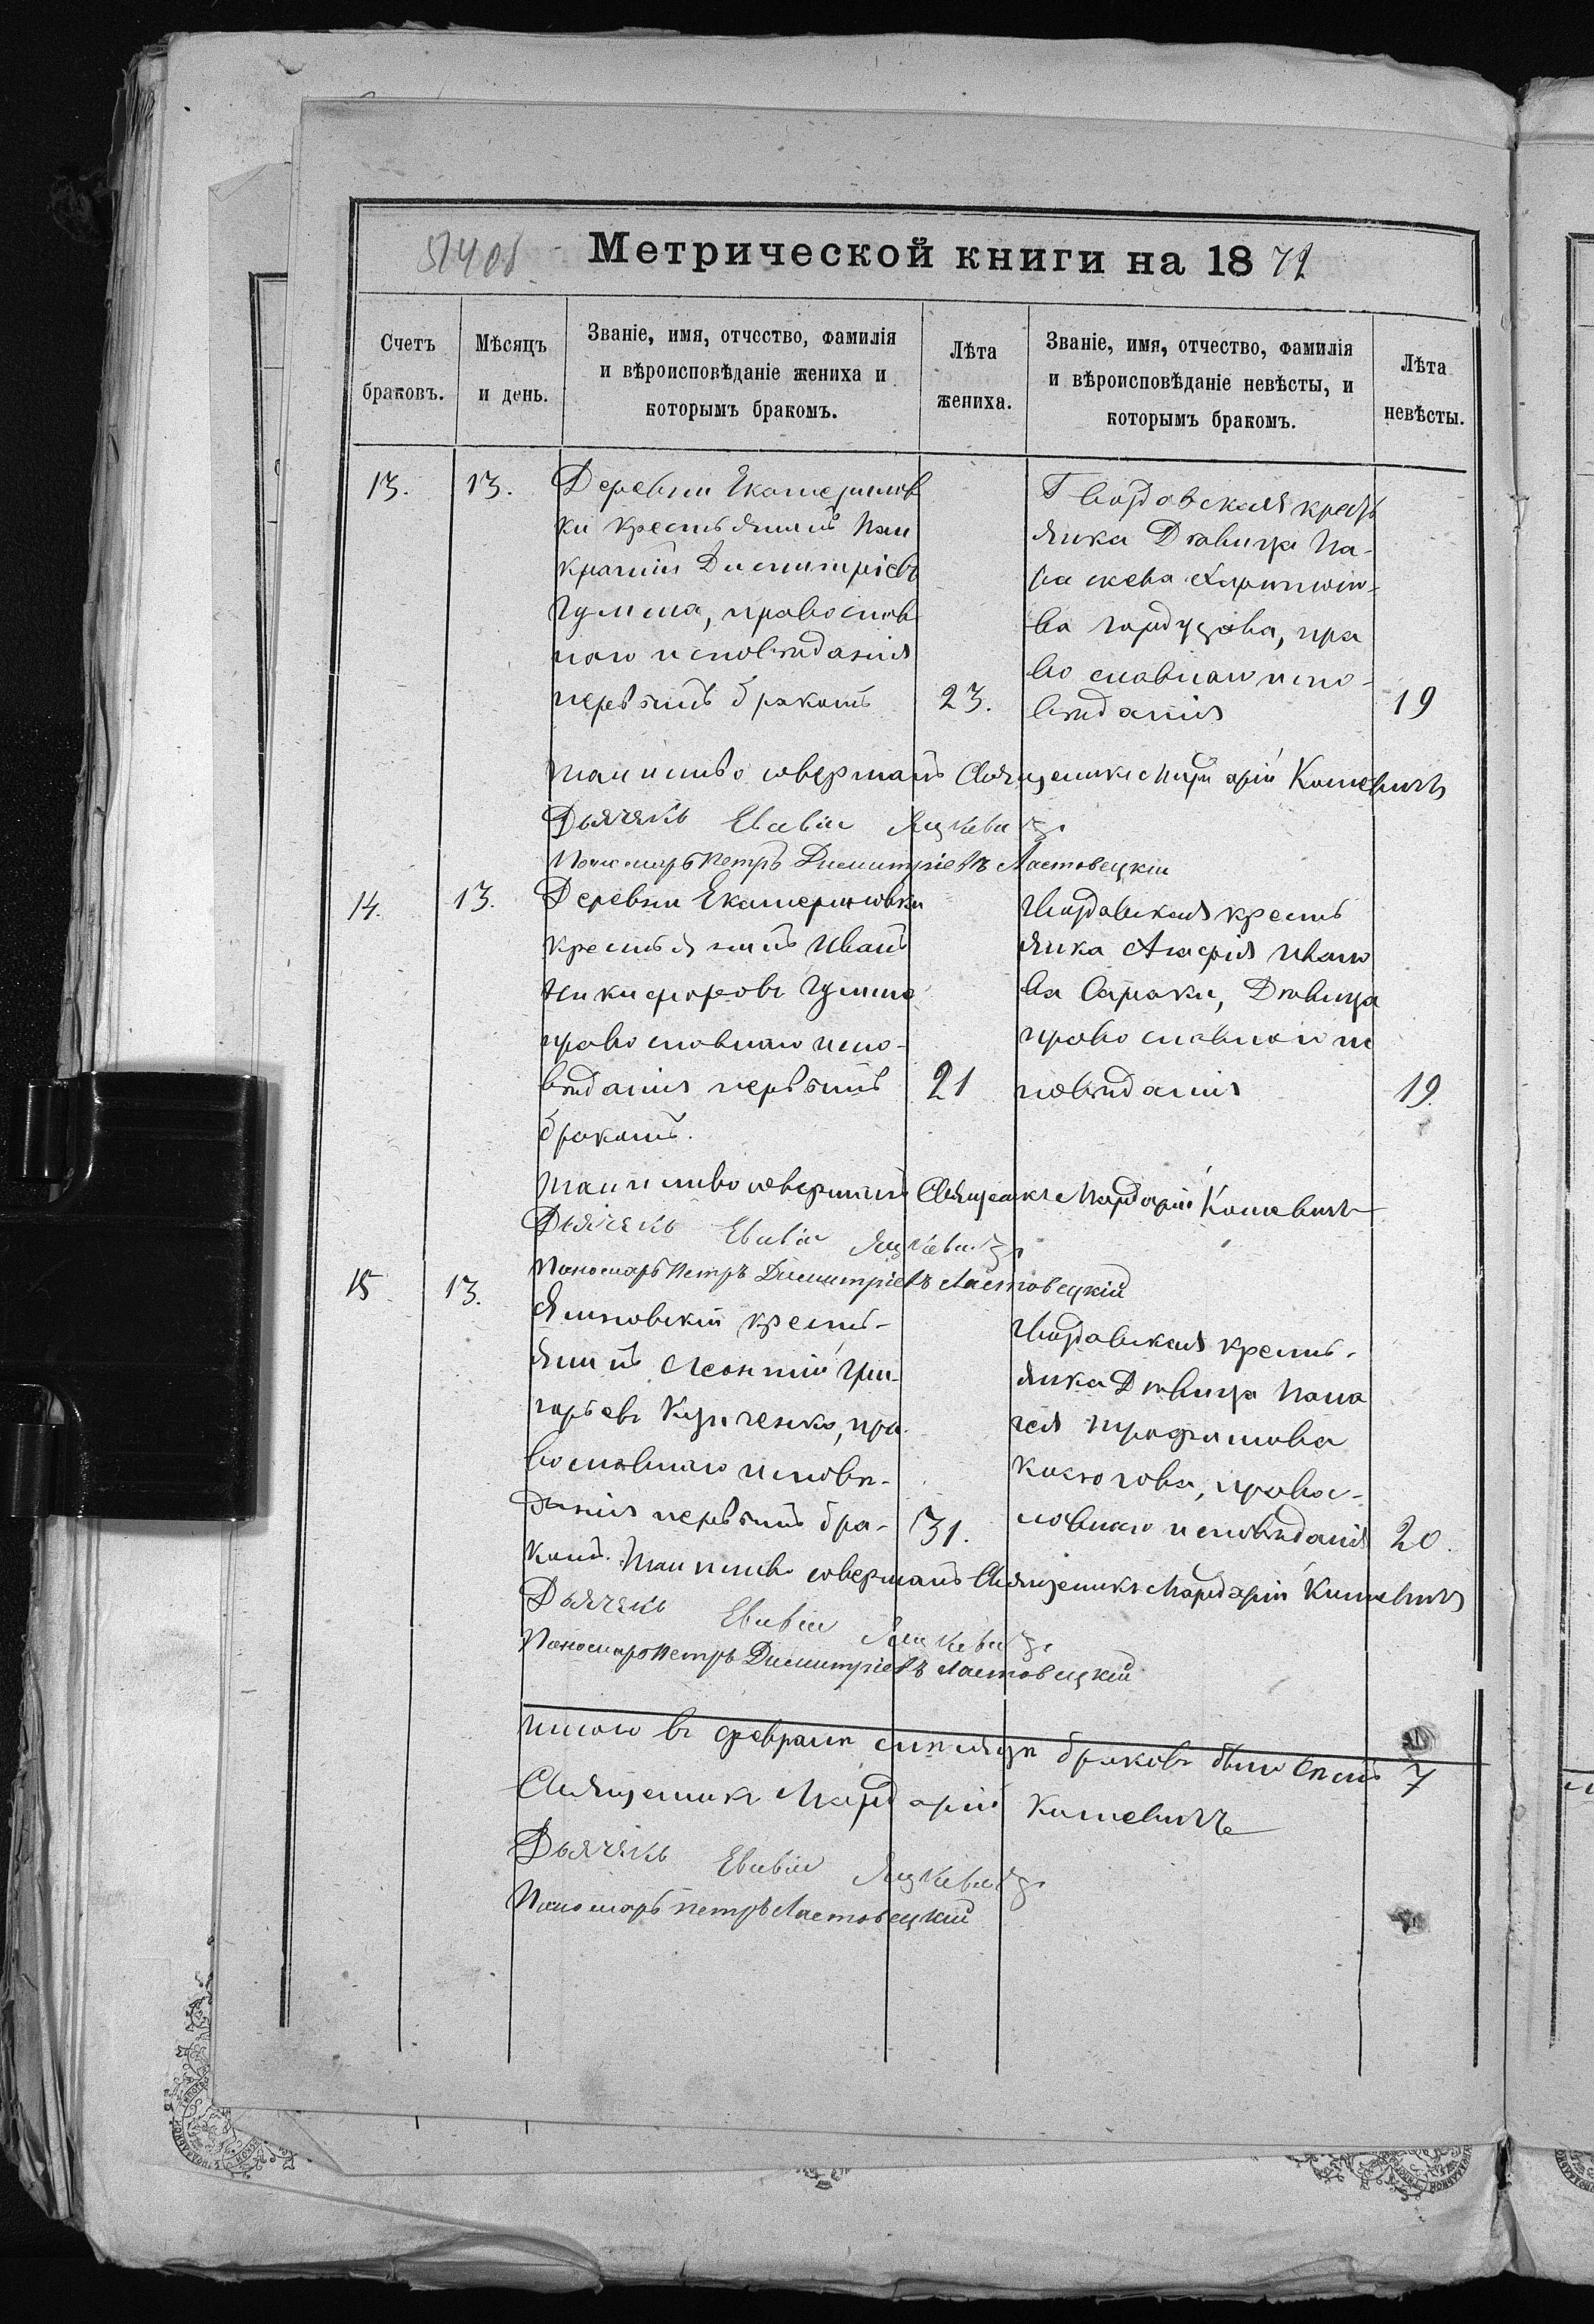 Метрической книги на 1872
Счетъ браковъ.
Мѣсяцъ и день.
Званіе, имя, отчество, фамилія
и вѣроисповѣданіе жениха и
которымъ бракомъ.
Лѣта жениха.
Званіе, имя, отчество, фамилія
и вѣроисповѣданіе невѣсты, и
которымъ бракомъ.
Лѣта невѣсты.
13.
13.
Деревни Екатеринов
ки крестьянинъ Пан
кратій Димитріевъ
православ
наго исповѣданія
первымъ бракомъ
23.
Гвоздовская кресть
янка Дѣвица Па-
раскева
ва пра
вославнаго испо-
вѣданія
19
Таинство совершалъ Священникъ Мардарій Котевичъ
Дьячекъ Евсевій Яцкевичъ
Пономарь Петръ Димитріевъ Ластовецкій
14.
13.
Деревни Екатериновки
крестьянинъ Иванъ
Никифоровъ
православнаго испо-
вѣданія первымъ
бракомъ.
21
Гвоздовская кресть
янка Агафія Ивано
ва Дѣвица
православнаго ис
повѣданія
19.
Таинство совершалъ Священникъ Мардарій Котевичъ
Дьячекъ Евсевій Яцкевичъ
Пономарь Петръ Димитріевъ Ластовецкій
15
13.
кресть-
янинъ Леонтій Гри-
горьевъ пра-
вославнаго исповѣ-
данія первымъ бра-
комъ.
31.
Гвоздовская кресть-
янка Дѣвица Пела
гея Трофимова
правос-
лавнаго исповѣданія
20.
Таинство совершалъ Священникъ Мардарій Котевичъ
Дьячекъ Евсевій Яцкевичъ
Пономарь Петръ Димитріевъ Ластовецкій
Итого въ февралѣ мѣсяцѣ браковъ было семь 7
Священникъ Мардарій Котевичъ
Дьячекъ Евсевій Яцкевичъ
Пономарь Петръ Ластовецкій